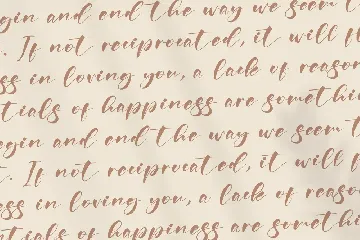 gin and end the way we seem t
. If not reciprocated, it will f
ss in loving you, a lack of reason
tials of happiness are somethi
egin and end the way we seem t
. If not reciprocated, it will f
ess in loving you, a lack of reaso
tials of happiness are somethi